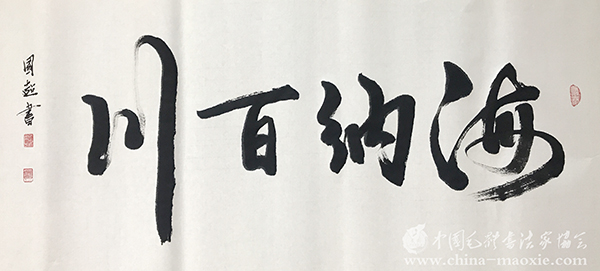 海纳百川
國 書
中国毛体书法家协会
www.china-maoxie.com